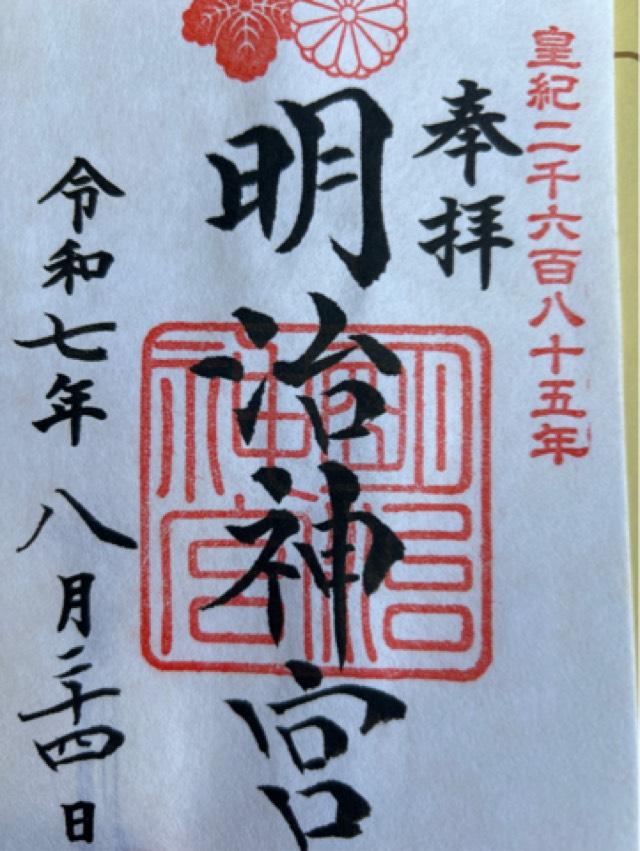 皇紀二千六百八十五年
奉拝
明治神宮
明治神宮
令和七年 八月二十四日